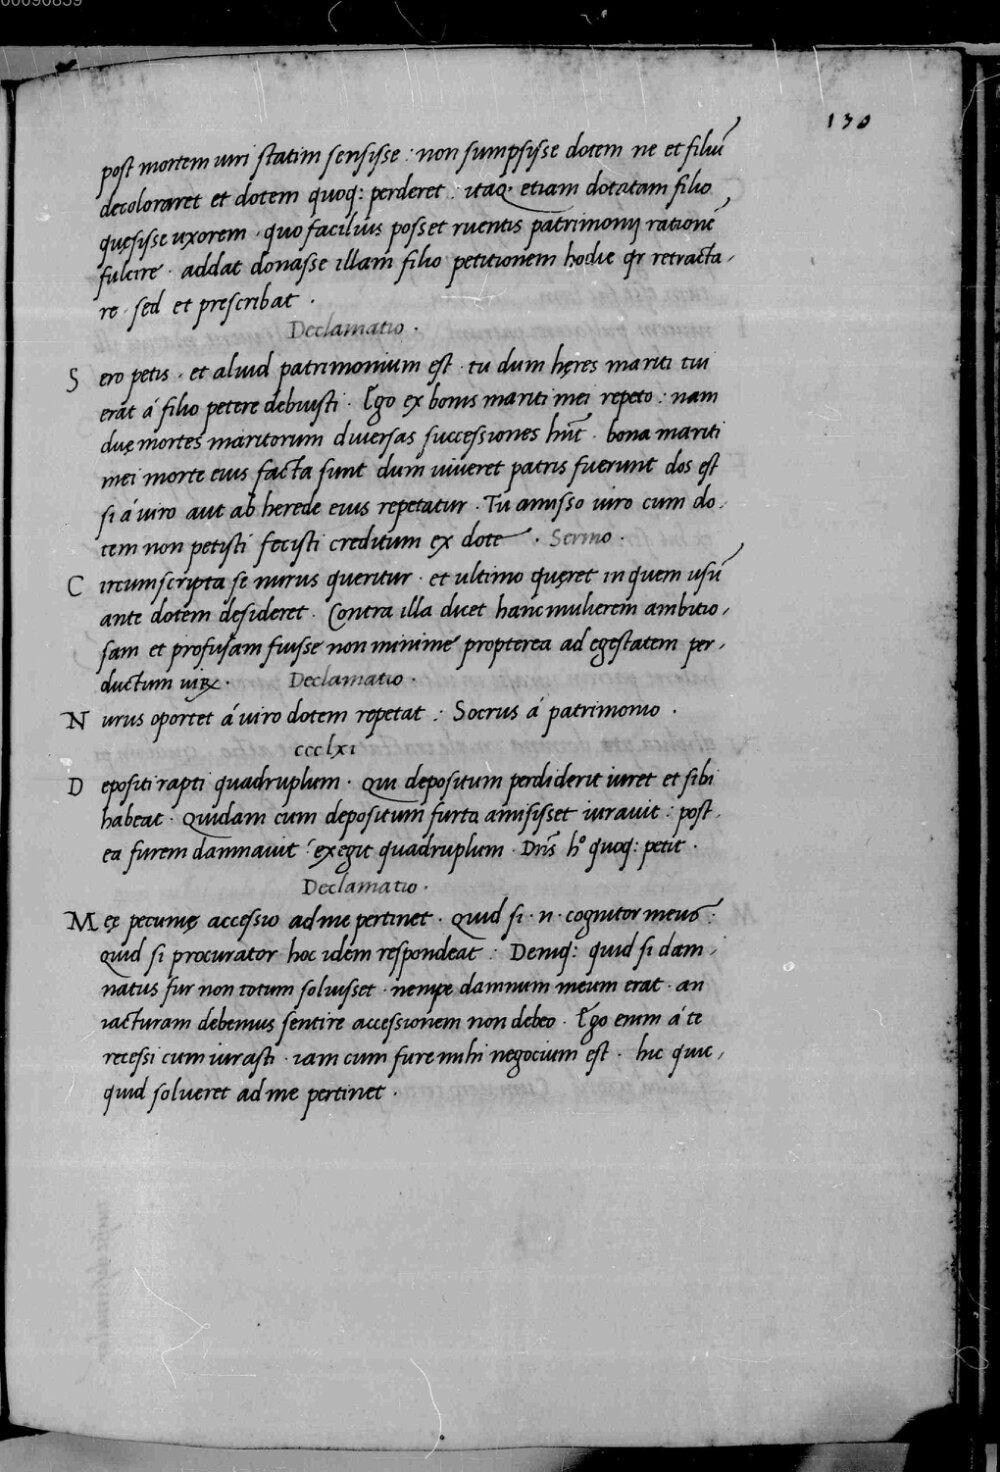 00090859
130
post mortem uiri statim sensisse : non sumpsisse dotem ne et filiū
decoloraret et dotem quoq: perderet : itaq· etiam dotatam filio
quęsisse uxorem · quo facilius posset ruentis patrimonij rationē
fulcire · addat donasse illam filio petitionem hodie qr retracta,
re · sed et prescribat ·
Declamatio ·
S ero petis · et aliud patrimonium est · tu dum hęres mariti tui
erat á filio petere debuisti · Ego ex bonis mariti mei repeto : nam
duę mortes maritorum diuersas successiones hnt̄ · bona mariti
mei morte eius facta sunt dum uiueret patris fuerunt dos est
si á uiro aut ab herede eius repetatur · Tu amisso uiro cum do,
tem non petisti fecisti creditum ex dote · Sermo ·
C ircumscripta se nurus queritur · et ultimo quęret in quem usū
ante dotem desideret · Contra illa dicet hanc mulierem ambitio,
sam et profusam fuisse non minime propterea ad egestatem per,
ductum uiꝝ · Declamatio ·
N urus oportet á uiro dotem repetat : Socrus á patrimonio ·
ccclxi
D epositi rapti quadruplum · Qui depositum perdiderit iuret et sibi
habeat · Quidam cum depositum furto amisisset iurauit : post,
ea furem damnauit : exegit quadruplum · Dn̄s hº quoq: petit ·
Declamatio ·
M eę pecunię accessio ad me pertinet · Quid si · n · cognitor meus :
quid si procurator hoc idem respondeat : Deniq: quid si dam,
natus fur non totum soluisset · nempe damnum meum erat · an
iacturam debemus sentire accessionem non debeo · Ego enim á te
recessi cum iurasti · iam cum fure mihi negocium est · hic quic,
quid solueret ad me pertinet ·